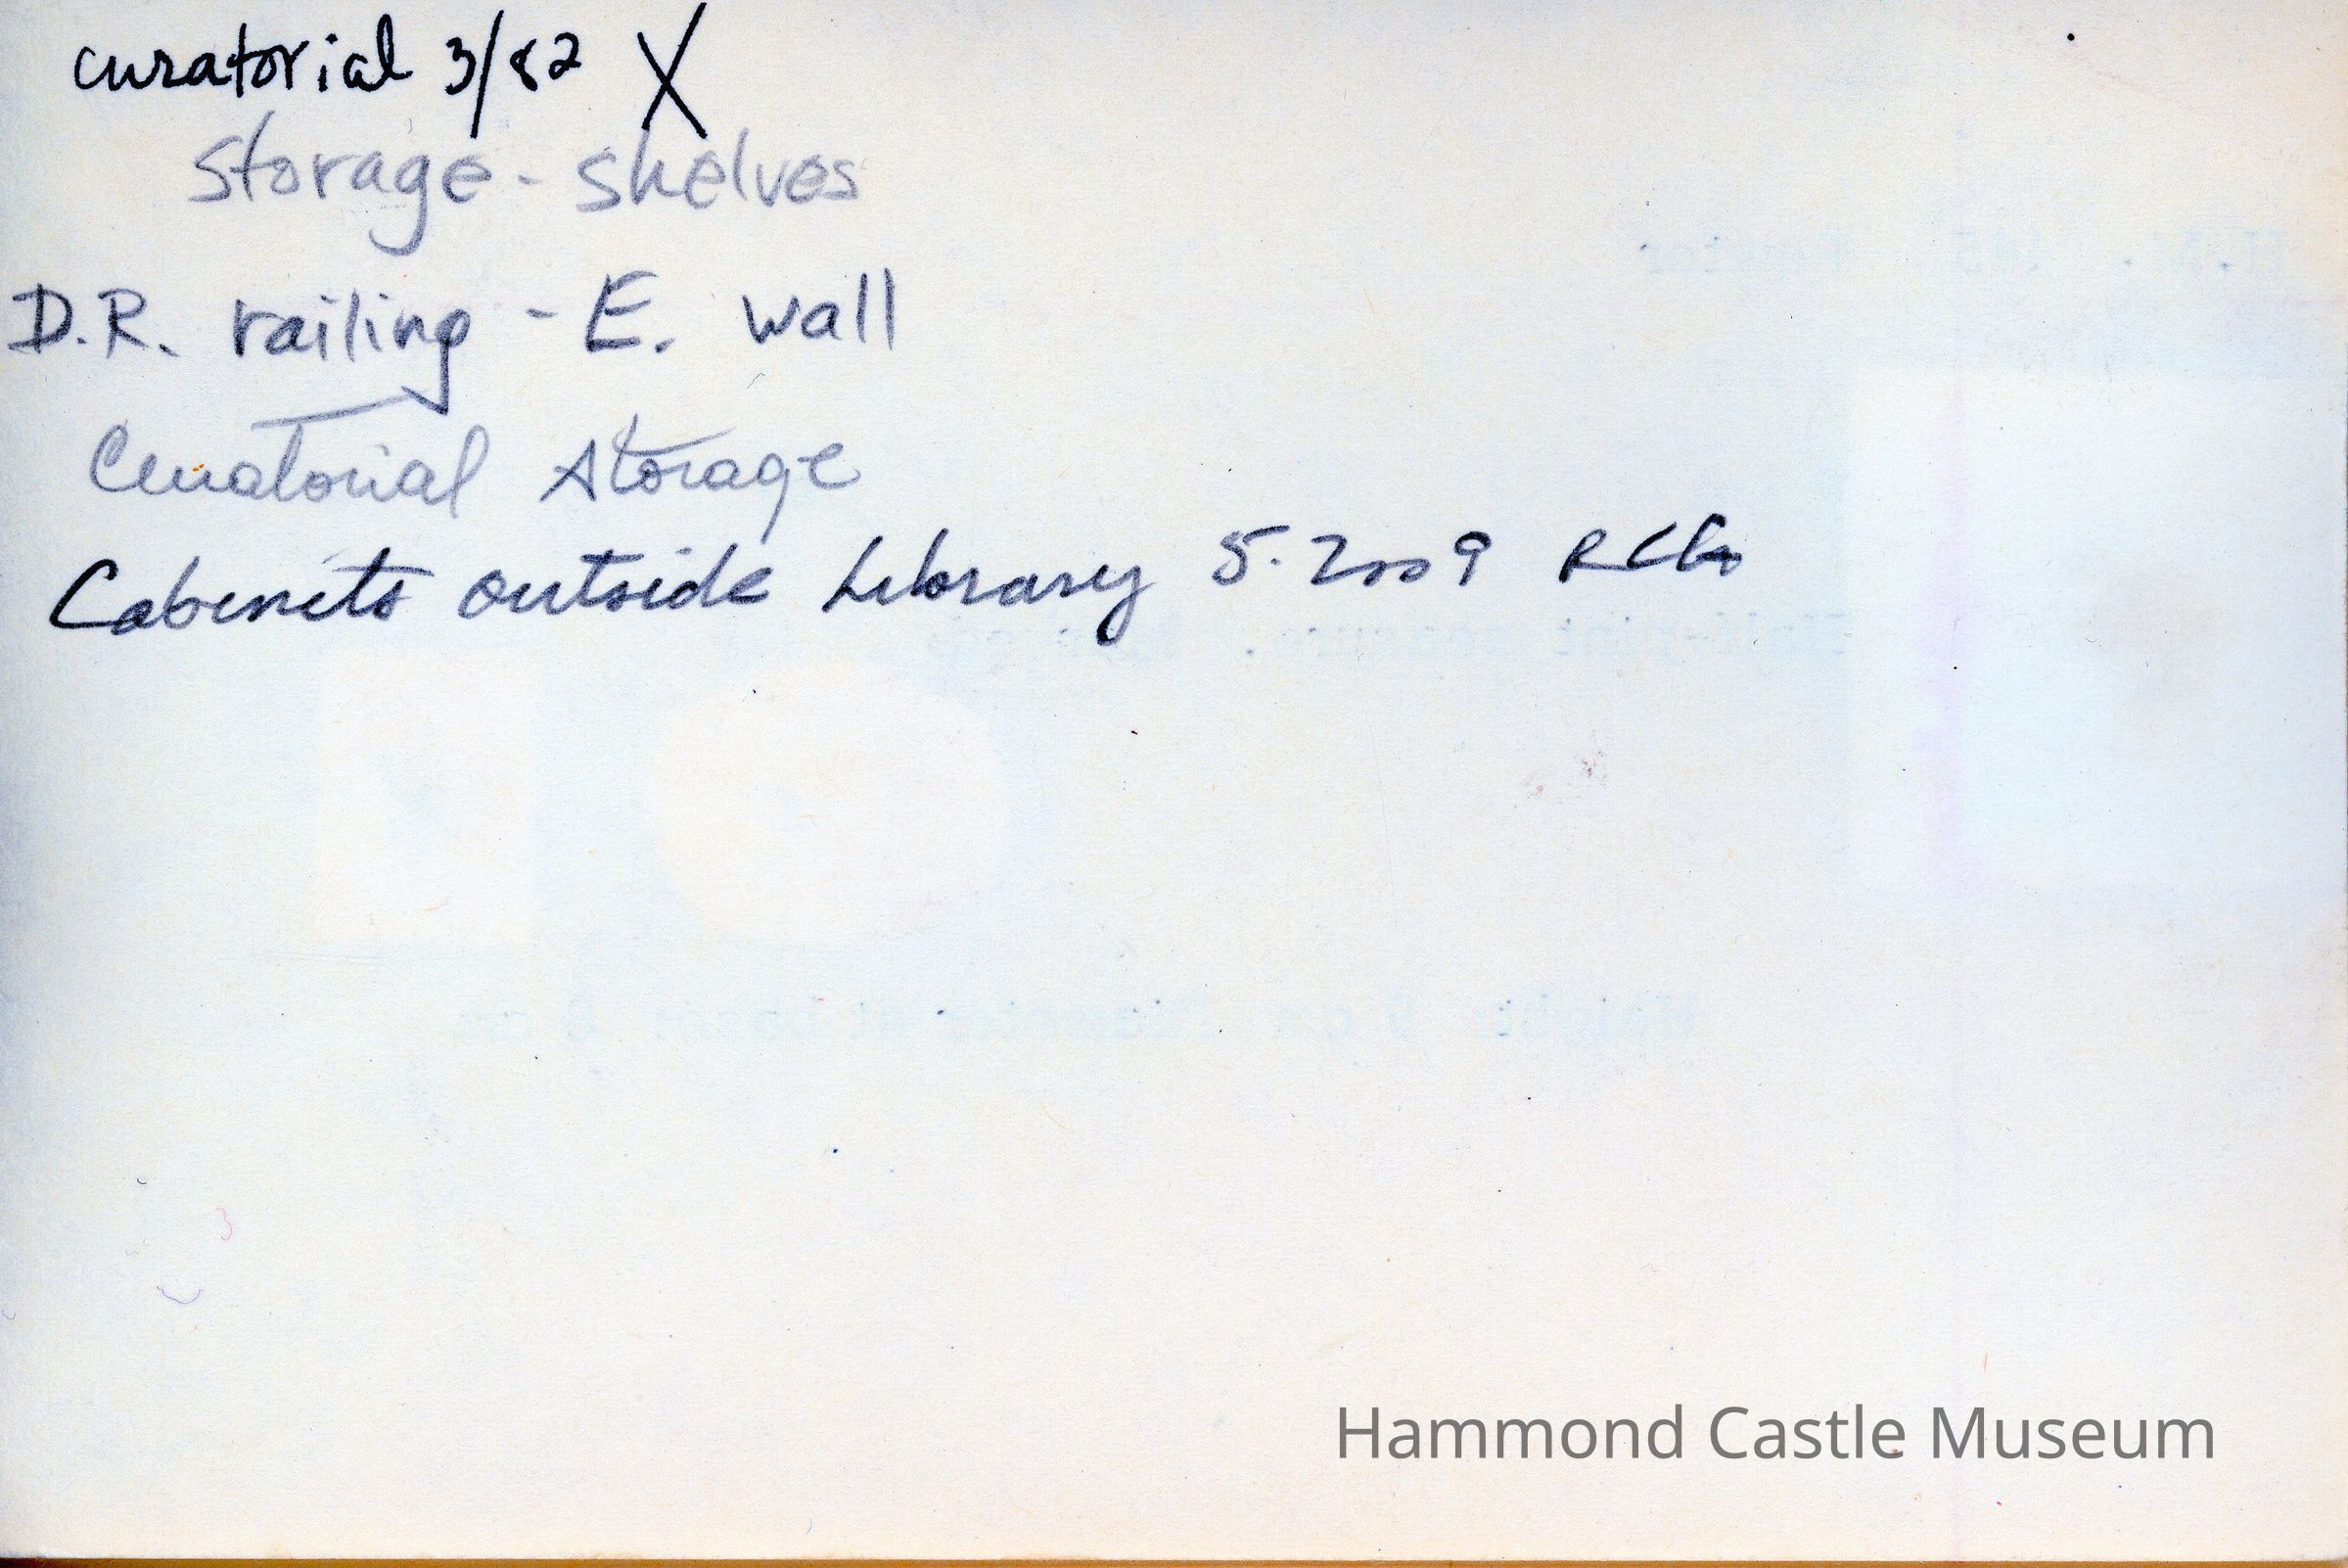 curatorial 3/82 X
Storage - shelves
D.R. railing - E. wall
Curatorial Storage
Cabinets outside Library 5.2009
Hammond Castle Museum